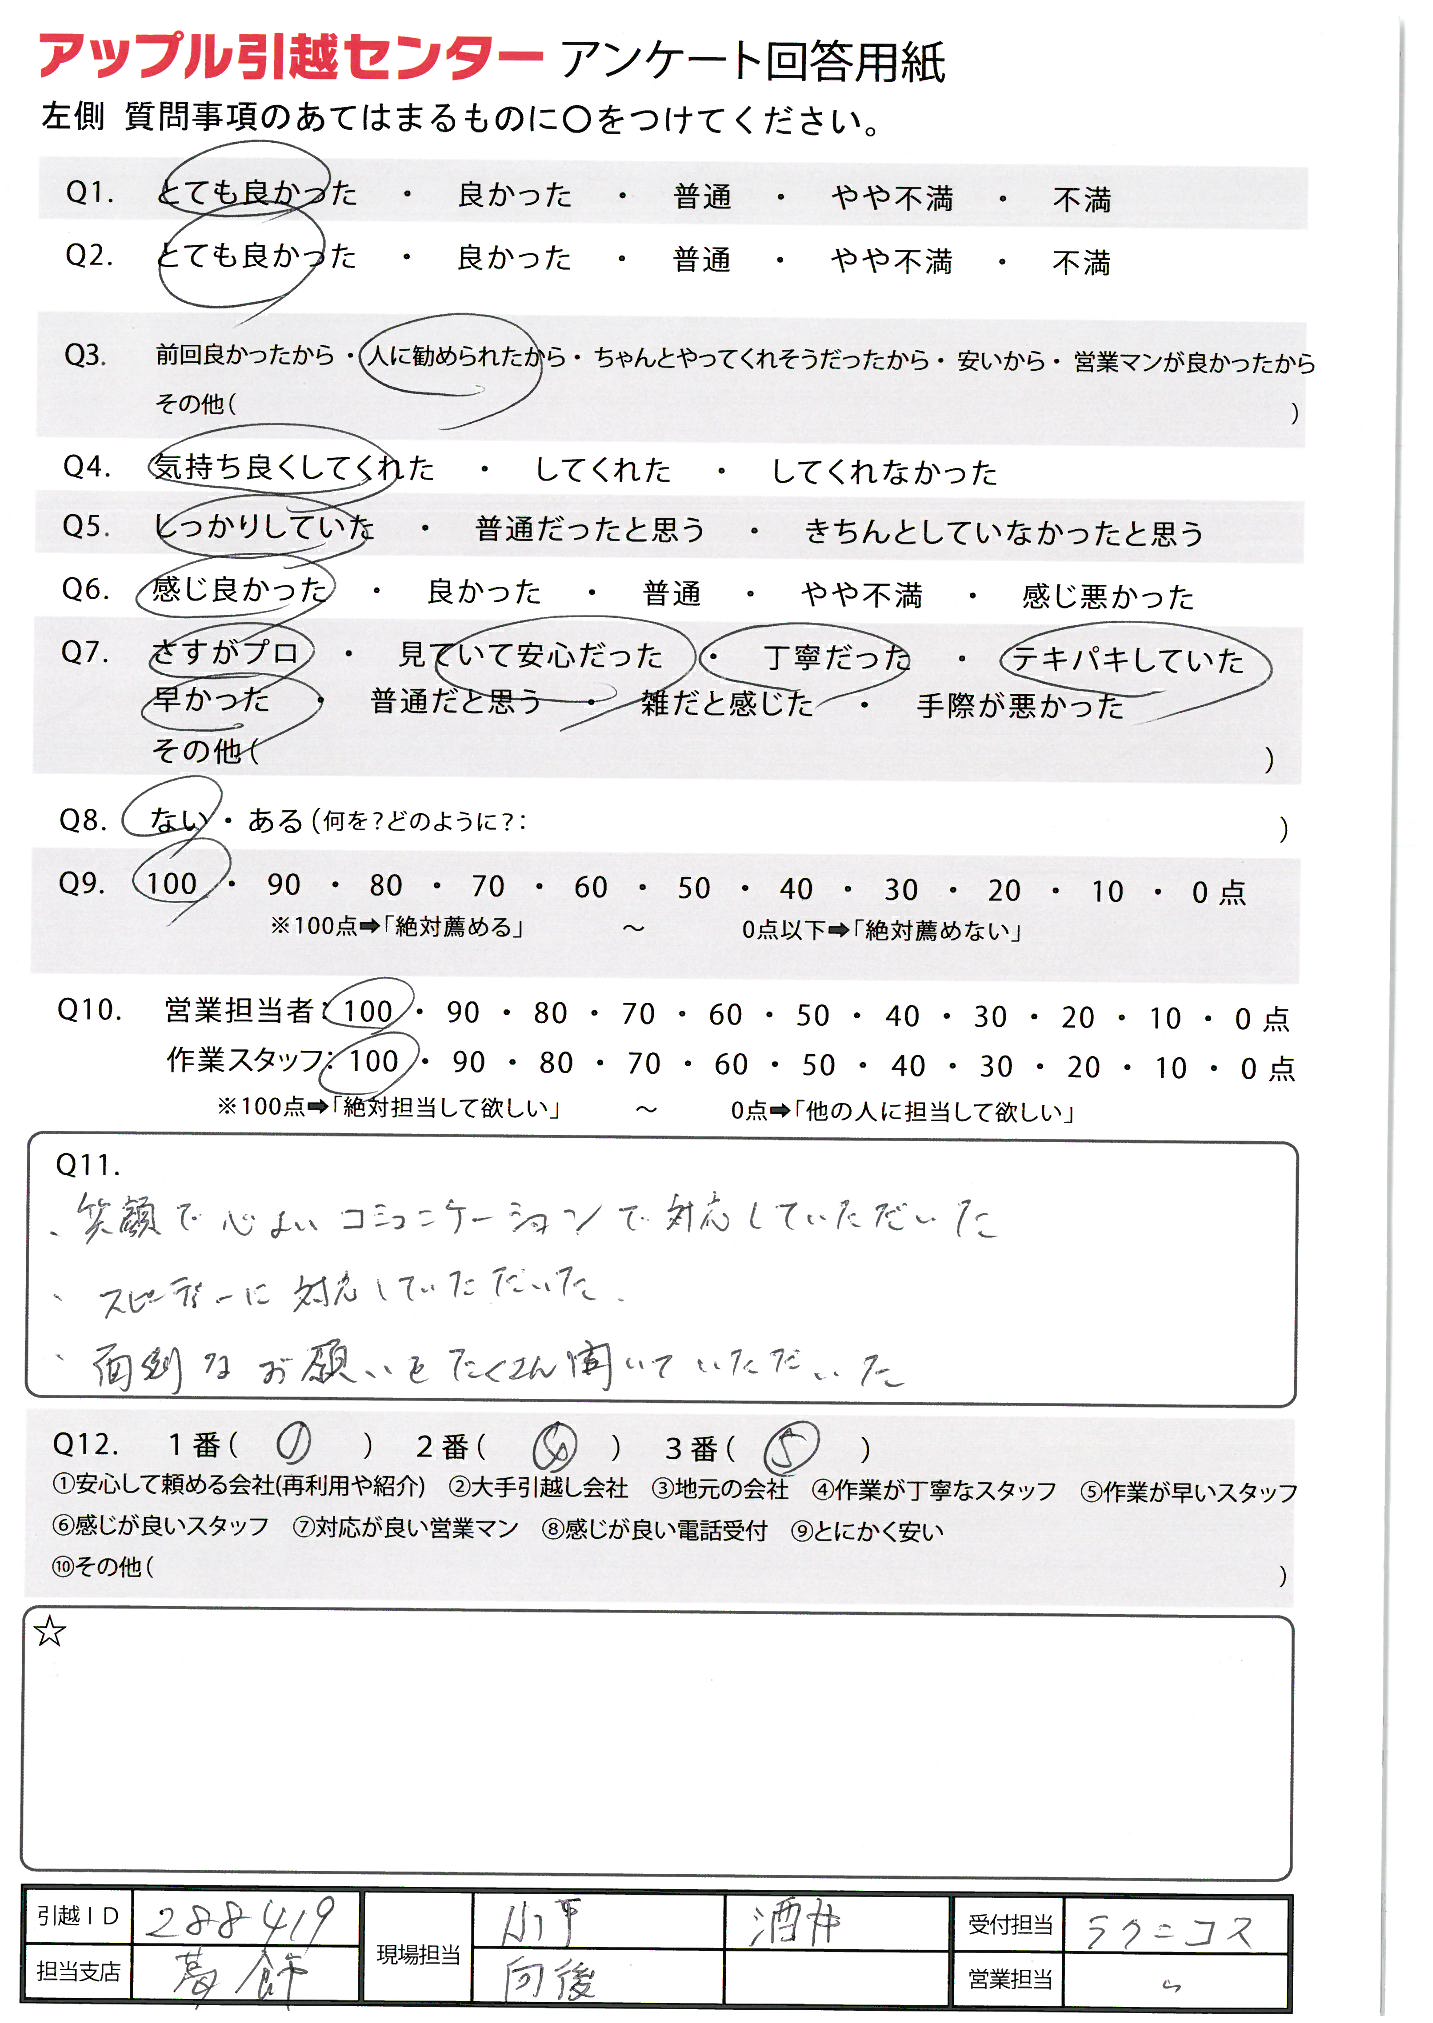 アップル引越センター アンケート回答用紙
左側 質問事項のあてはまるものに〇をつけてください。
Q1. とても良かった ・ 良かった ・ 普通 ・ やや不満 ・ 不満
Q2. とても良かった ・ 良かった ・ 普通 ・ やや不満 ・ 不満
Q3. 前回良かったから ・ 人に勧められたから ・ ちゃんとやってくれそうだったから ・ 安いから ・ 営業マンが良かったから
その他( )
Q4. 気持ち良くしてくれた ・ してくれた ・ してくれなかった
Q5. しっかりしていた ・ 普通だったと思う ・ きちんとしていなかったと思う
Q6. 感じ良かった ・ 良かった ・ 普通 ・ やや不満 ・ 感じ悪かった
Q7. さすがプロ ・ 見ていて安心だった ・ 丁寧だった ・ テキパキしていた
早かった ・ 普通だと思う ・ 雑だと感じた ・ 手際が悪かった
その他( )
Q8. ない ・ ある (何を?どのように?: )
Q9. 100 ・ 90 ・ 80 ・ 70 ・ 60 ・ 50 ・ 40 ・ 30 ・ 20 ・ 10 ・ 0 点
※100点➡「絶対薦める」 ～ 0点以下➡「絶対薦めない」
Q10. 営業担当者: 100 ・ 90 ・ 80 ・ 70 ・ 60 ・ 50 ・ 40 ・ 30 ・ 20 ・ 10 ・ 0 点
作業スタッフ: 100 ・ 90 ・ 80 ・ 70 ・ 60 ・ 50 ・ 40 ・ 30 ・ 20 ・ 10 ・ 0 点
※100点➡「絶対担当して欲しい」 ～ 0点➡「他の人に担当して欲しい」
Q11.
、笑顔で心よいコミュニケーションで対応していただいた
、スピーディーに対応していただいた.
、面倒なお願いもたくさん聞いていただいた
Q12. 1番( ① ) 2番( ) 3番( ⑤ )
①安心して頼める会社(再利用や紹介) ②大手引越し会社 ③地元の会社 ④作業が丁寧なスタッフ ⑤作業が早いスタッフ
⑥感じが良いスタッフ ⑦対応が良い営業マン ⑧感じが良い電話受付 ⑨とにかく安い
⑩その他( )
☆
引越ID 288419 現場担当 酒井 受付担当 ラクニコス
担当支店 葛飾 向後 営業担当 〃